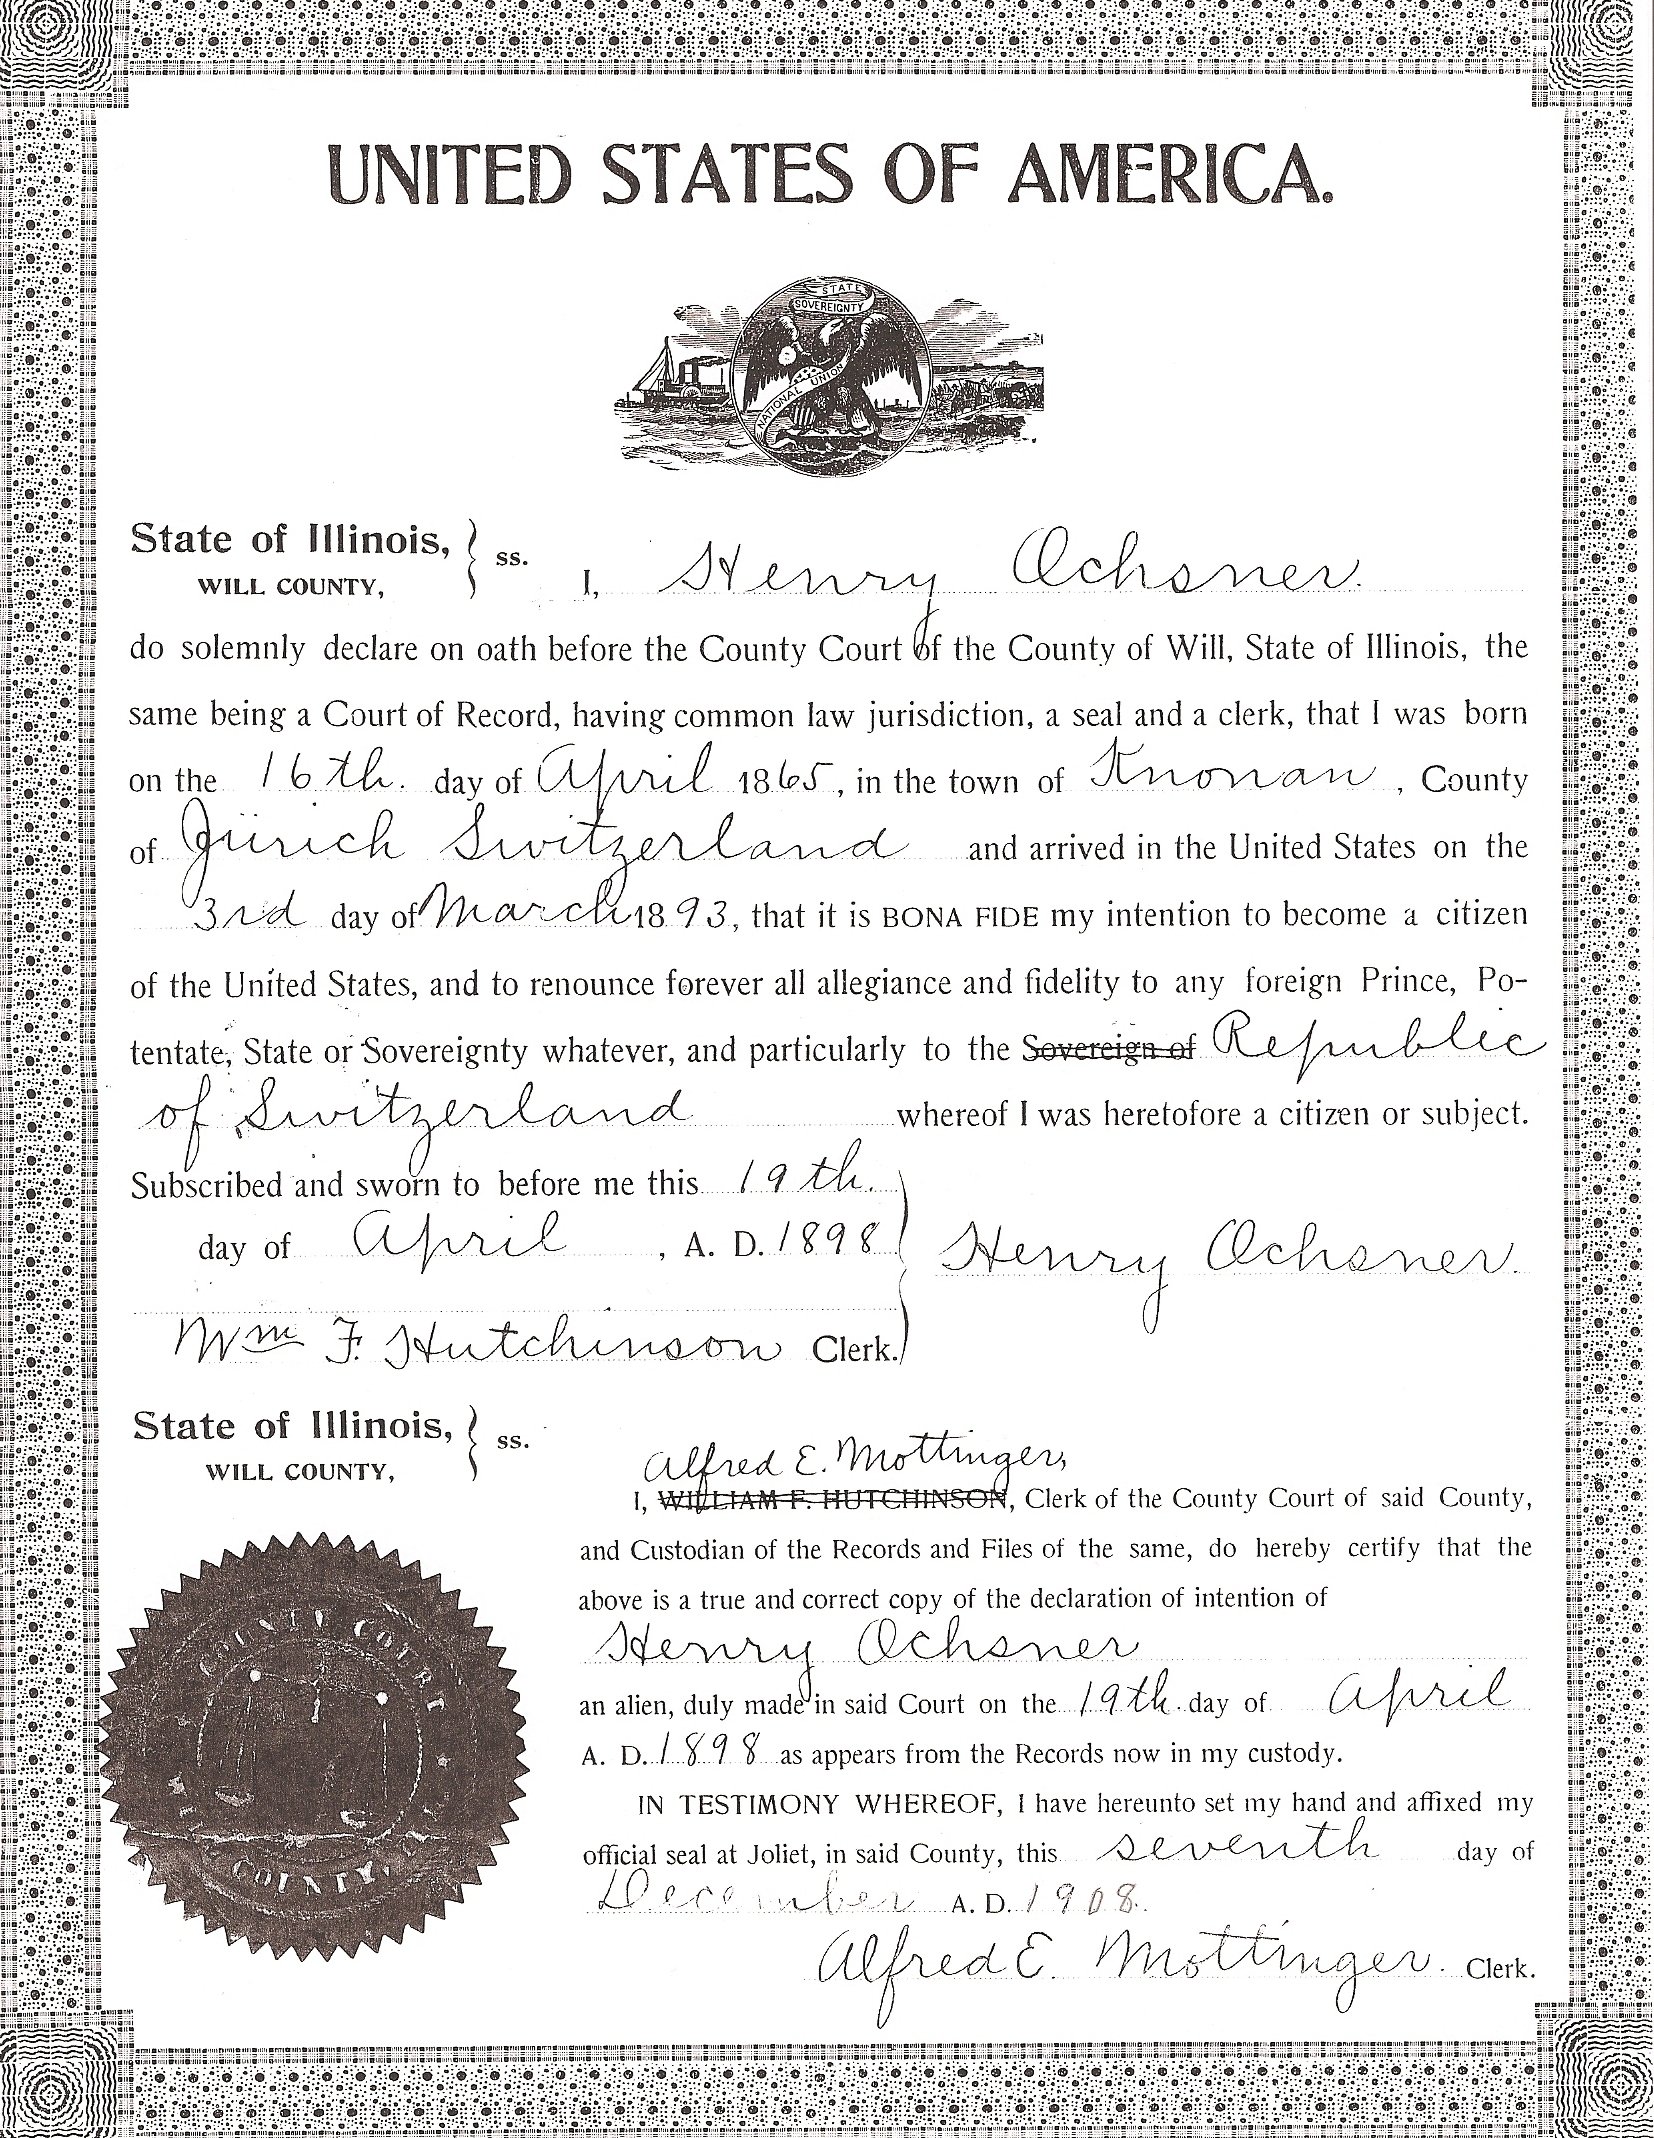 UNITED STATES OF AMERICA.
STATE
SOVEREIGNTY
NATIONAL UNION
State of Illinois, ss.
WILL COUNTY,
I, Henry Ochsner.
do solemnly declare on oath before the County Court of the County of Will, State of Illinois, the
same being a Court of Record, having common law jurisdiction, a seal and a clerk, that I was born
on the 16th. day of April 1865, in the town of Knonan, County
of Zürich Switzerland and arrived in the United States on the
3rd day of March 1893, that it is BONA FIDE my intention to become a citizen
of the United States, and to renounce forever all allegiance and fidelity to any foreign Prince, Po-
tentate, State or Sovereignty whatever, and particularly to the Sovereign of Republic
of Switzerland whereof I was heretofore a citizen or subject.
Subscribed and sworn to before me this 19th.
day of April, A. D. 1898
Henry Ochsner.
Wm F. Hutchinson Clerk.
State of Illinois, ss.
WILL COUNTY,
Alfred E. Mottinger,
I, WILLIAM F. HUTCHINSON, Clerk of the County Court of said County,
and Custodian of the Records and Files of the same, do hereby certify that the
above is a true and correct copy of the declaration of intention of
Henry Ochsner
an alien, duly made in said Court on the 19th. day of April
A. D. 1898 as appears from the Records now in my custody.
IN TESTIMONY WHEREOF, I have hereunto set my hand and affixed my
official seal at Joliet, in said County, this seventh day of
December A. D. 1908.
Alfred E. Mottinger. Clerk.
COUNTY COURT
COUNTY